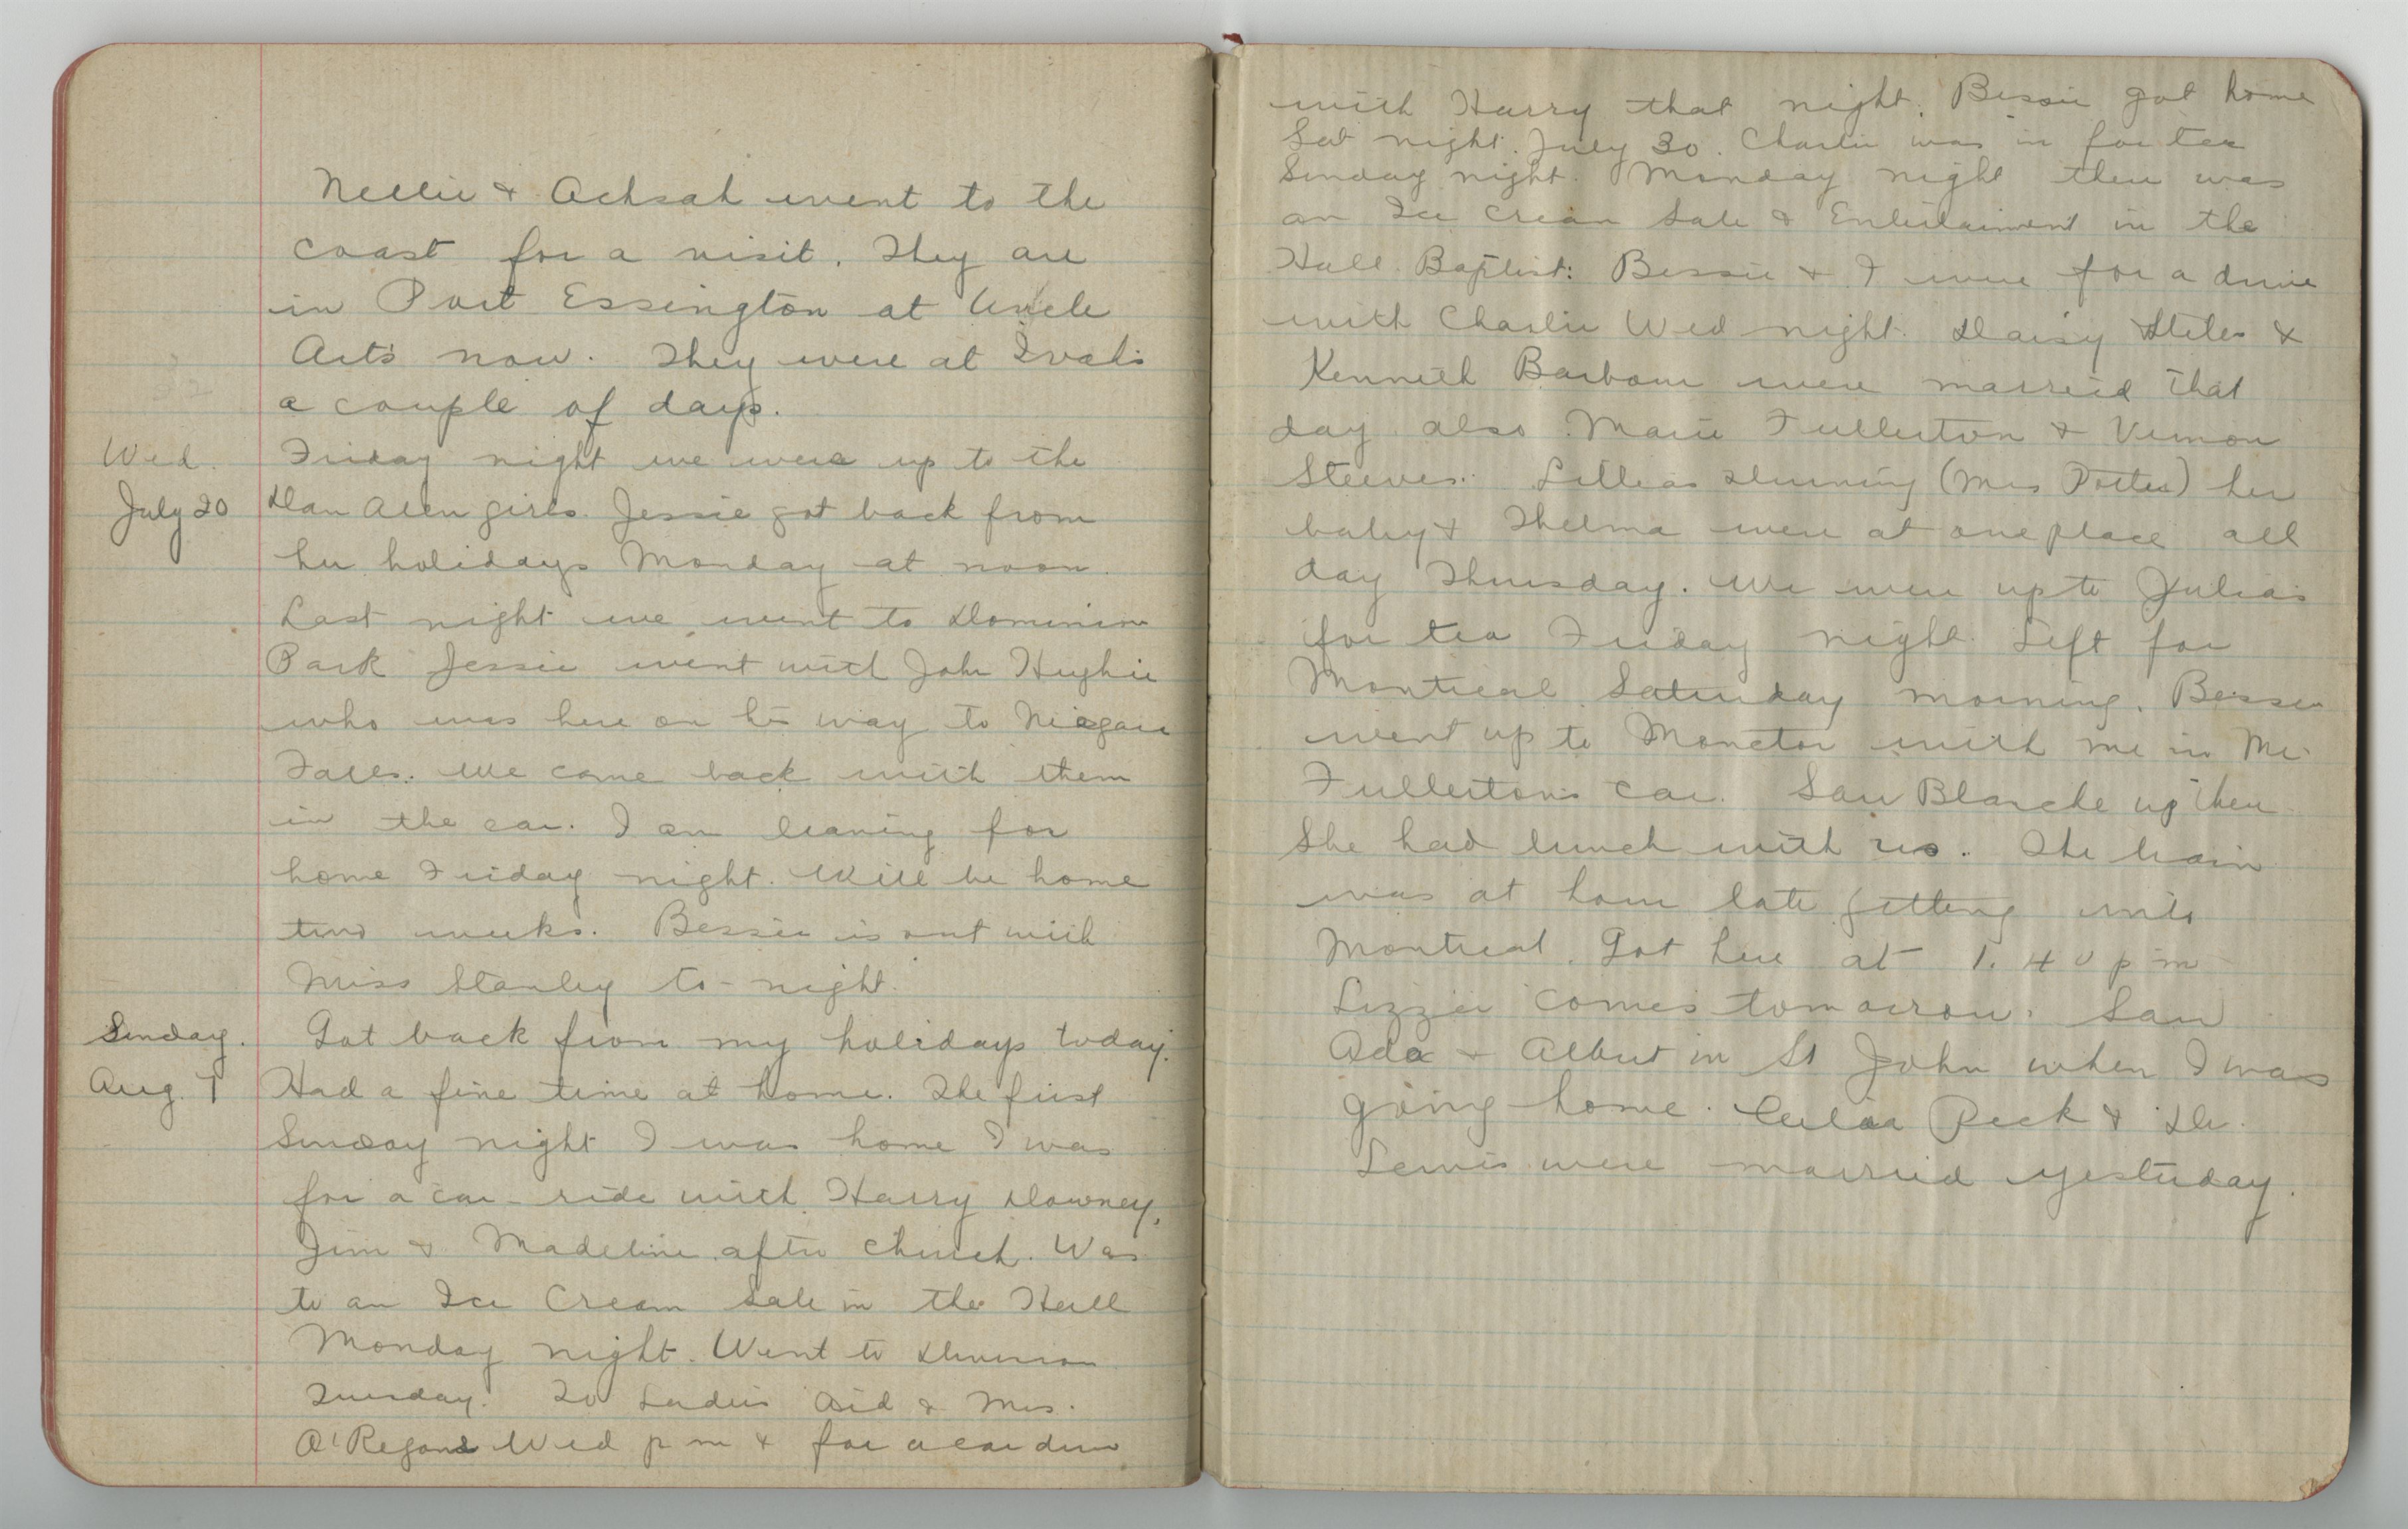 Nellie & Achsah went to the
coast for a visit. They are
in Port Essington at Uncle
Art's now. They were at
a couple of days.
Wed. Friday night we were up to the
July 20 girls. Jessie got back from
her holidays Monday at noon.
Last night we went to Dominion
Park Jessie went with John Hughie
who was here on his way to Niagara
Falls. We came back with them
in the car. I am leaving for
home Friday night. Will be home
two weeks. Bessie is out with
Miss Stanley to-night.
Sunday. Got back from my holidays today.
Aug. 7 Had a fine time at home. The first
Sunday night I was home I was
for a car-ride with Harry Downey,
Jim & Madeline after church. Was
to an Ice Cream Sale in the Hall
Monday night. Went to Division
Tuesday. To Ladies Aid & Mrs.
O'Regans Wed p m & for a car drive
with Harry that night. Bessie got home
Sat night. July 30. Charlie was in for tea
Sunday night. Monday night there was
an Ice Cream Sale & Entertaiment in the
Hall. Baptist: Bessie & I were for a drive
with Charlie Wed night. Daisy Stiles &
Kenneth Barbour were married that
day also Marie Fullerton & Vernon
Steeves. Lillias (Mrs Porter) her
baby & Thelma were at our place all
day Thursday. We were up to Julia's
for tea Friday night. Left for
Montreal Saturday morning. Bessie
went up to Moncton with me in Mr.
Fullerton's car. Saw Blanche up there
She had lunch with us. The train
was at hour late getting into
Montreal. Got here at 1.40 p m
Lizzie comes tomorrow. Saw
Ada & Albert in St John when I was
going home. Peck & Dr.
Lewis were married yesterday.